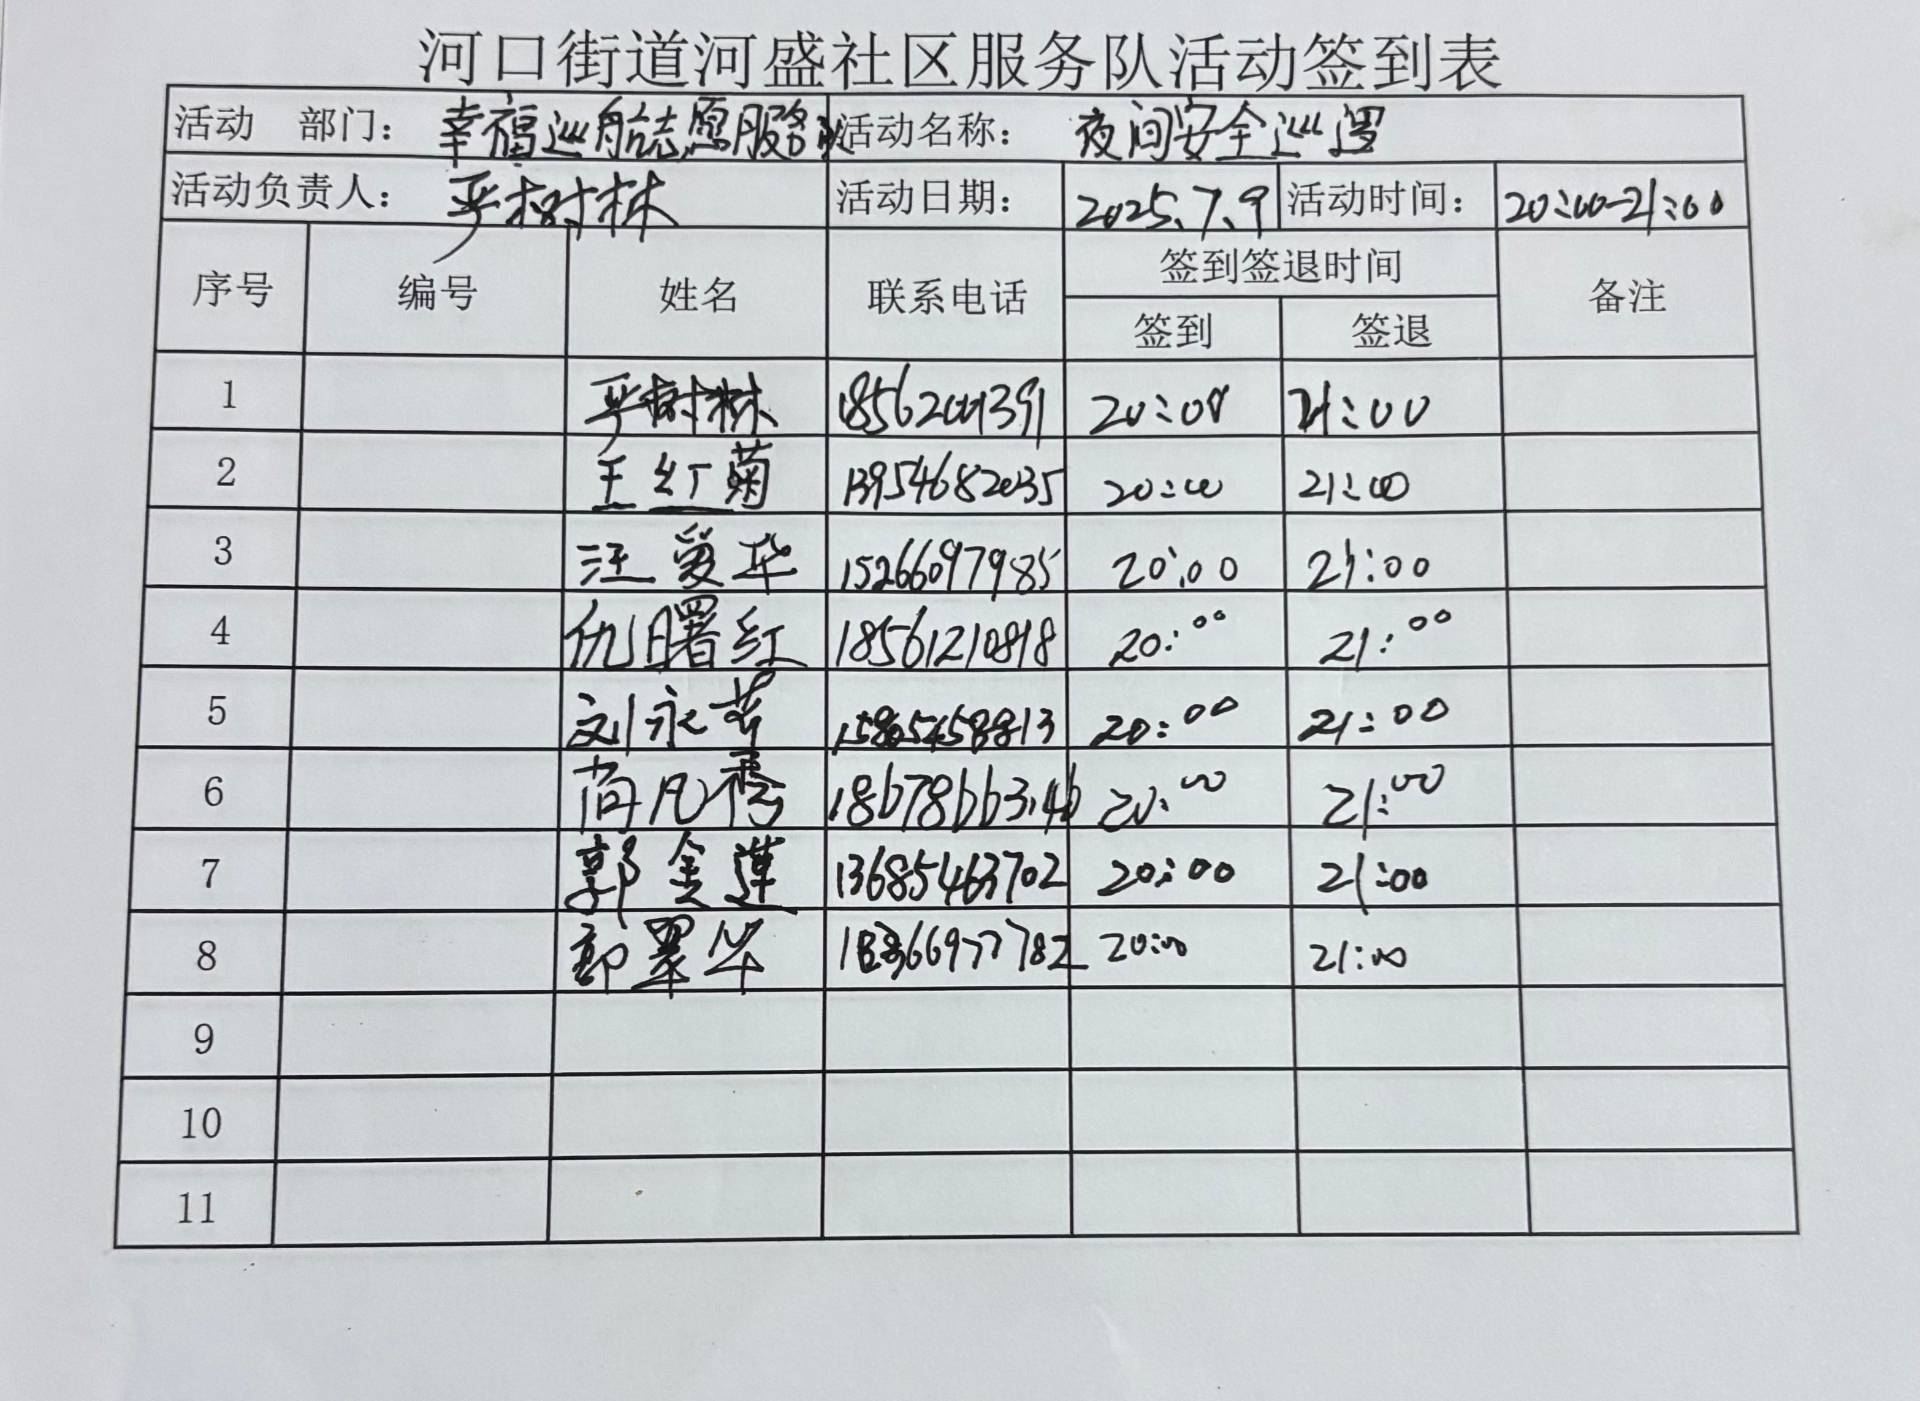 河口街道河盛社区服务队活动签到表
活动 部门： 幸福巡航志愿服务队 活动名称： 夜间安全巡逻
活动负责人： 严树林 活动日期： 2025.7.9 活动时间： 20:00-21:00
序号 编号 姓名 联系电话 签到签退时间 备注
签到 签退
1 严树林 18562001391 20:00 21:00
2 王红菊 13954682035 20:00 21:00
3 汪爱华 15266097985 20:00 21:00
4 仇曙红 18561210818 20:00 21:00
5 刘永芳 20:00 21:00
6 20:00 21:00
7 郭金莲 13685463702 20:00 21:00
8 郭翠华 20:00 21:00
9
10
11